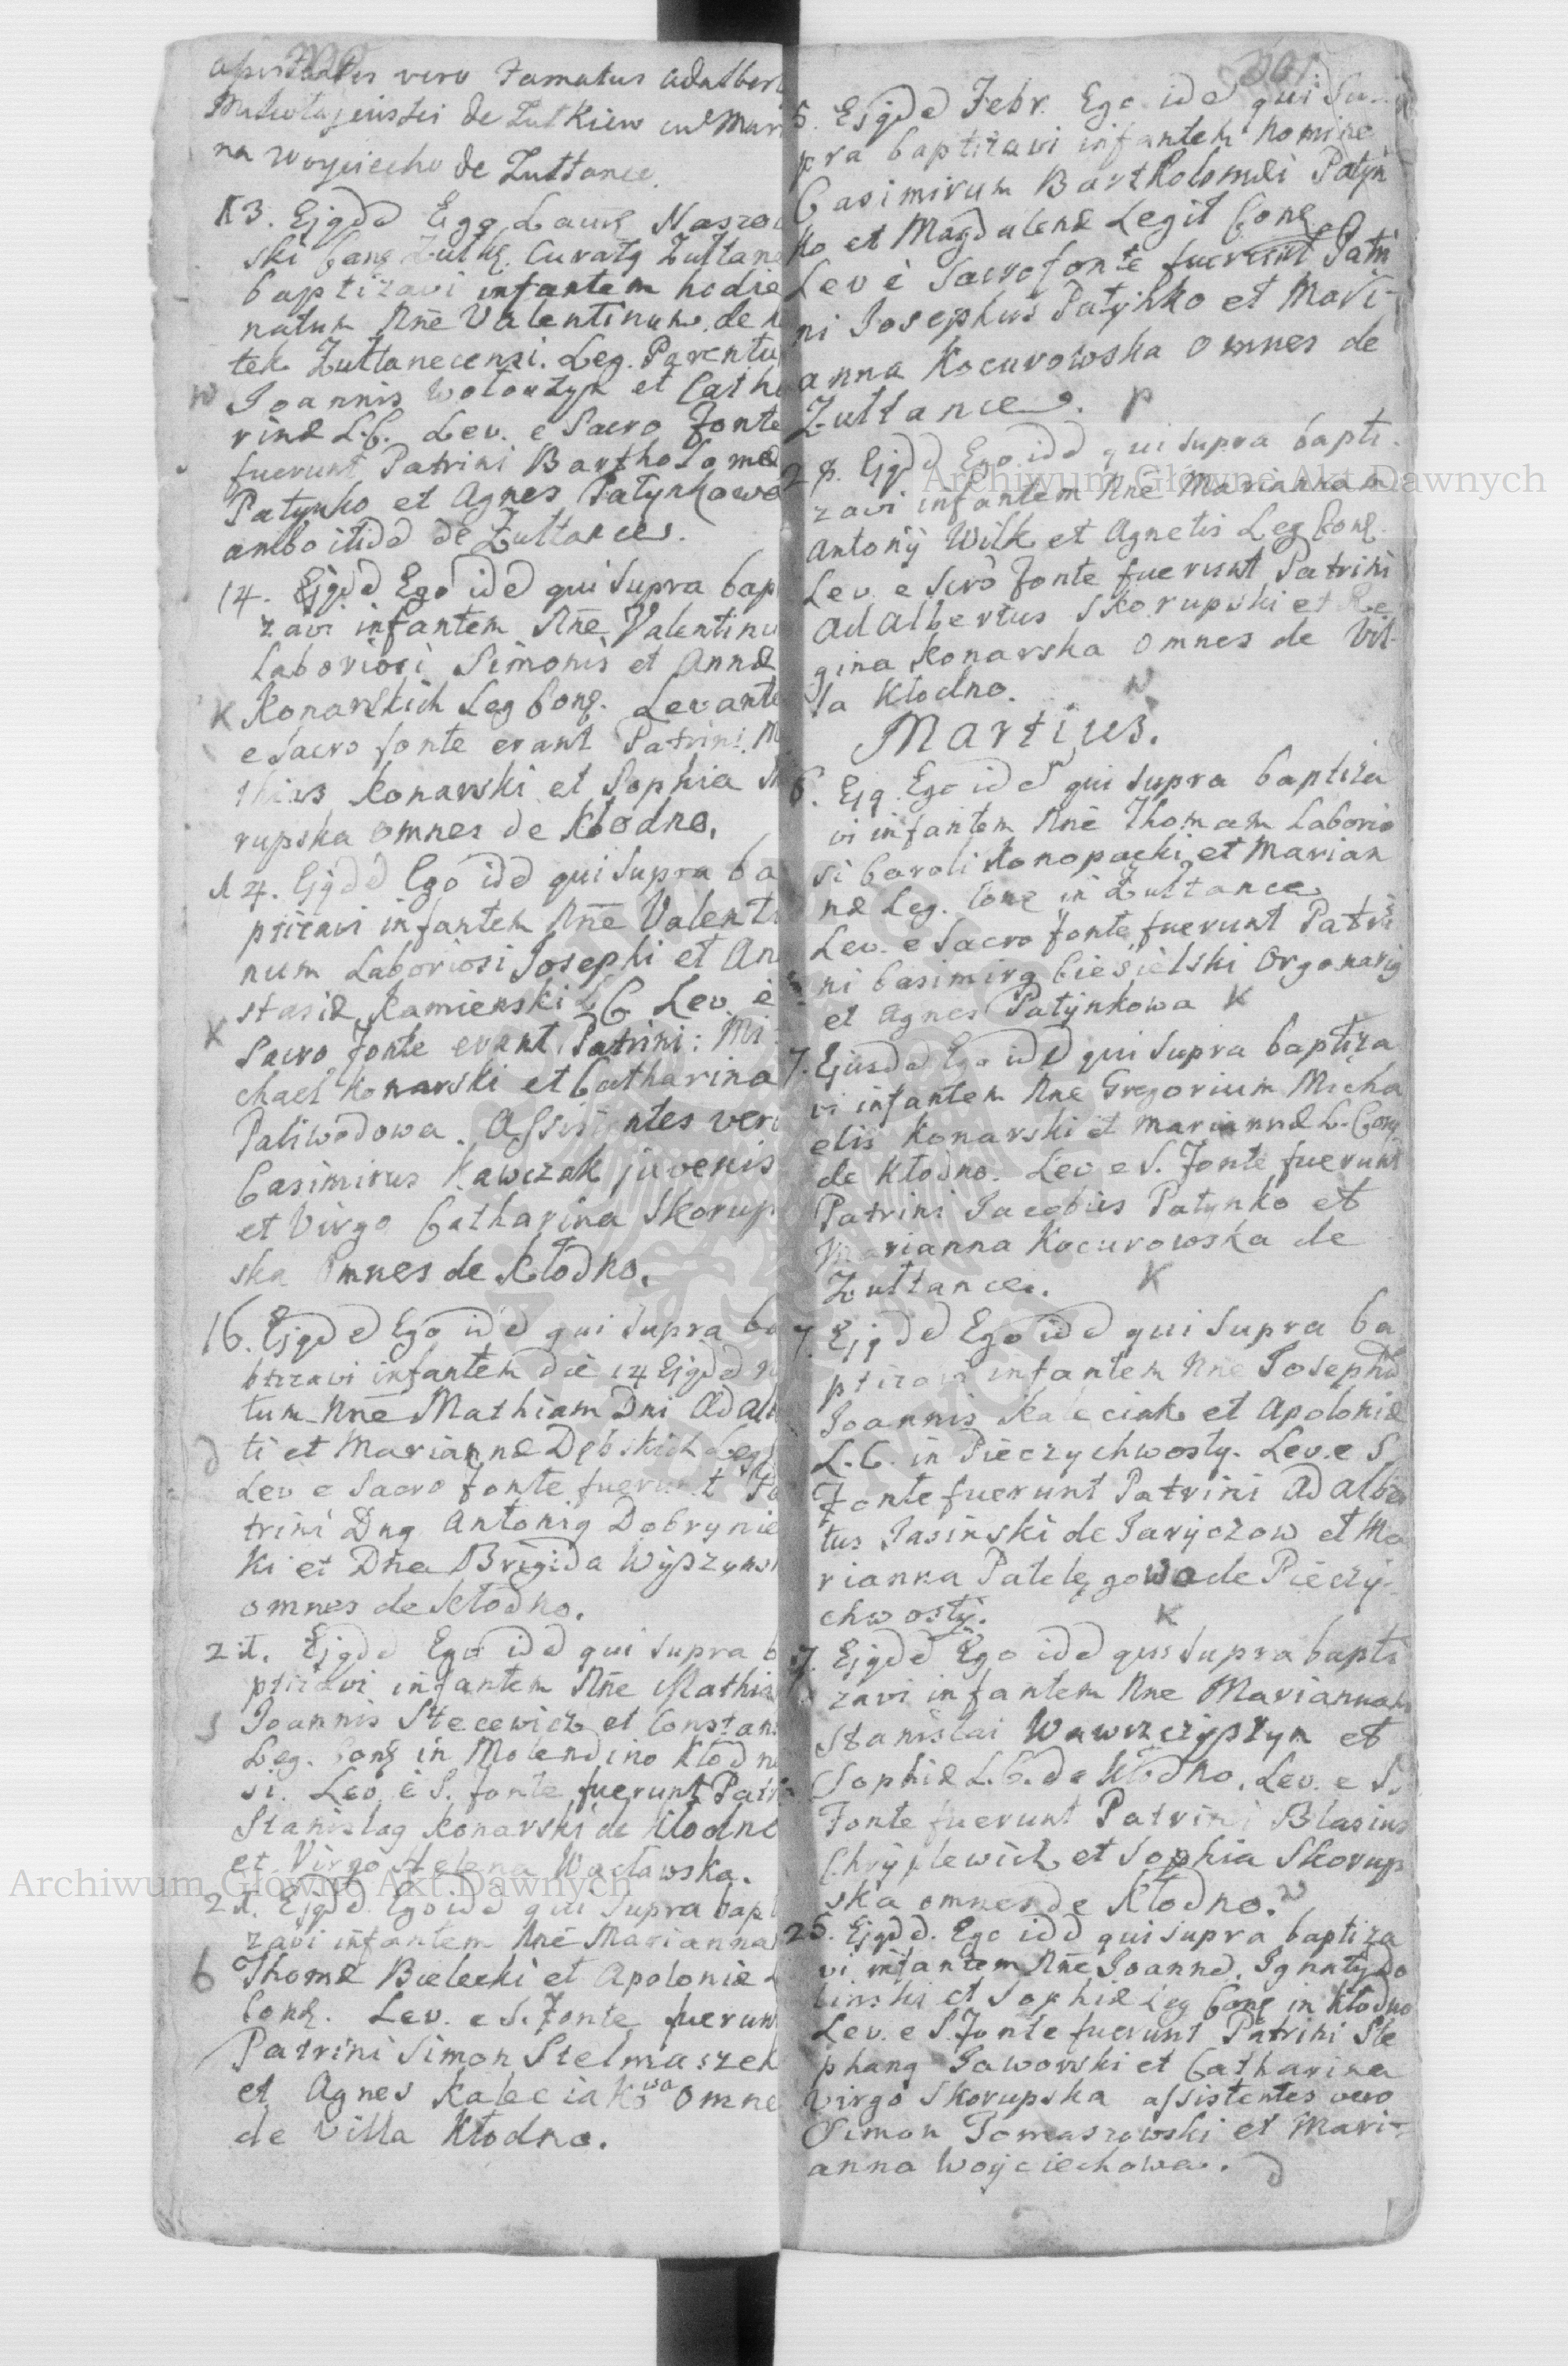 vero Famatus Adalber
de Zulkiew
na Woyciecho de Zułtance.
13. Ejqdd Ego Laurq
ski Canq Zulkq. Curatq Zułtane
baptizavi infantem hodie
natum Nne Valentinum, de
tek Zułtanecensi. Leg. Parentu
Joannis et Catha
rinæ L.C. Lev. e Sacro Fonte
fuerunt Patrini Bartholomæ
Patynko et Agnes Patynkowa
ambo itidd de Zułtance.
14. Ejqdd Ego idd qui Supra bap
zavi infantem Nne Valentinu
Laboriosi Simonis et Annæ
K Konarskich Leg Conq. Levante
e Sacro fonte erant Patrini M
thias Konarski et Sophia
rupska omnes de Kłodno.
14. Ejqdd Ego idd qui Supra ba
ptizavi infantem Nne Valenti
num Laboriosi Josephi et An
stasiæ Kamienski L C Lev. è
K Sacro fonte erant Patrini: Mi
chael Konarski et Catharina
Paliwodowa. Assistentes vero
Casimirus Kawczak juvenis
et Virgo Catharina Skorup
ska omnes de Kłodno.
16. Ejqdd Ego idd qui Supra ba
btizavi infantem die 14 Ejqdd
tum Nne Mathiam Dni Adal
ti et Mariannæ Dębskich Leg
Lev e Sacro fonte fuerunt Pa
trini Dnq Antoniq Dobrynie
ki et Dna Brigida Wyszyns
omnes de Kłodno.
21. Ejqdd Ego idd qui Supra b
ptizavi infantem Nne Mathia
S Joannis Stecewicz et Constan
Leg. Conq in Molendino Kłodne
si. Lev. è S. fonte fuerunt Patri
Stanislaq Konarski de Kłodno
et Virgo Helena Wacławska.
21. Ejqdd Ego idd qui Supra bapt
zavi infantem Nne Marianna
6 Thomæ Bielecki et Apoloniæ L
Conq. Lev. e S. Fonte fuerun
Patrini Simon Stelmaszek
et Agnes Kaleciakowa omne
de Villa Kłodno.
5. Ejqdd Febr. Ego idd qui Su-
pra baptizavi infantem Nomine
Casimirum Bartholomæi Patyn
ko et Magdalenæ Legit Conq
Lev è Sacro fonte fuerunt Patri
ni Josephus Patynko et Mari-
anna Kocurowska omnes de
Zułtance. P
Ejqdd Ego idd qui supra bapti-
zavi infantem Nne Mariannam
Antonij Wilk et Agnetis Leg Conq.
Lev e Scro fonte fuerunt Patrini
Adalbertus Skorupski et Re
gina Konarska omnes de Vil-
la Kłodno. W
Martius.
6. Ejq. Ego idd qui supra baptiza
vi infantem Nne Thomam Laborio
si Caroli Konopacki et Marian
næ Leg. Conq in Zułtance
Lev. e Sacro fonte fuerunt Patri
ni Casimirq Ciesielski Organariq
et Agnes Patynkowa K
7. Ejusdd Ego idd qui Supra baptiza
vi infantem Nne Gregorium Micha
elis Konarski et Mariannæ L. Conq
de Kłodno. Lev e S. Fonte fuerunt
Patrini Jacobus Patynko et
Marianna Kocurowska de
Zułtance. K
7. Ejqdd Ego idd qui supra ba
ptizavi infantem Nne Josephd
Joannis Kaleciak et Apoloniæ
L.C. in Pieczychwosty. Lev. e S
Fonte fuerunt Patrini Adalber
tus Jasinski de Jaryczow et Ma
rianna de Pieczy-
chwosty. K
Ejqdd Ego idd qui supra bapti
zavi infantem Nne Mariannam
Stanislai et
Sophiæ L.C. de Kłodno. Lev. e S.
Fonte fuerunt Patrini Blasius
et Sophia Skorup
ska omnes de Kłodno. W
25. Ejqdd. Ego idd qui supra baptiza
vi infantem Nne Joannd. Do
binski et Sophiæ Leg Conq in Kłodno
Lev. e S. Fonte fuerunt Patrini Ste
phanq Jaworski et Catharina
Virgo Skorupska assistentes vero
Simon Tomaszowski et Mari-
anna Woyciechowa. D
Archiwum Główne Akt Dawnych
Archiwum Główne Akt Dawnych